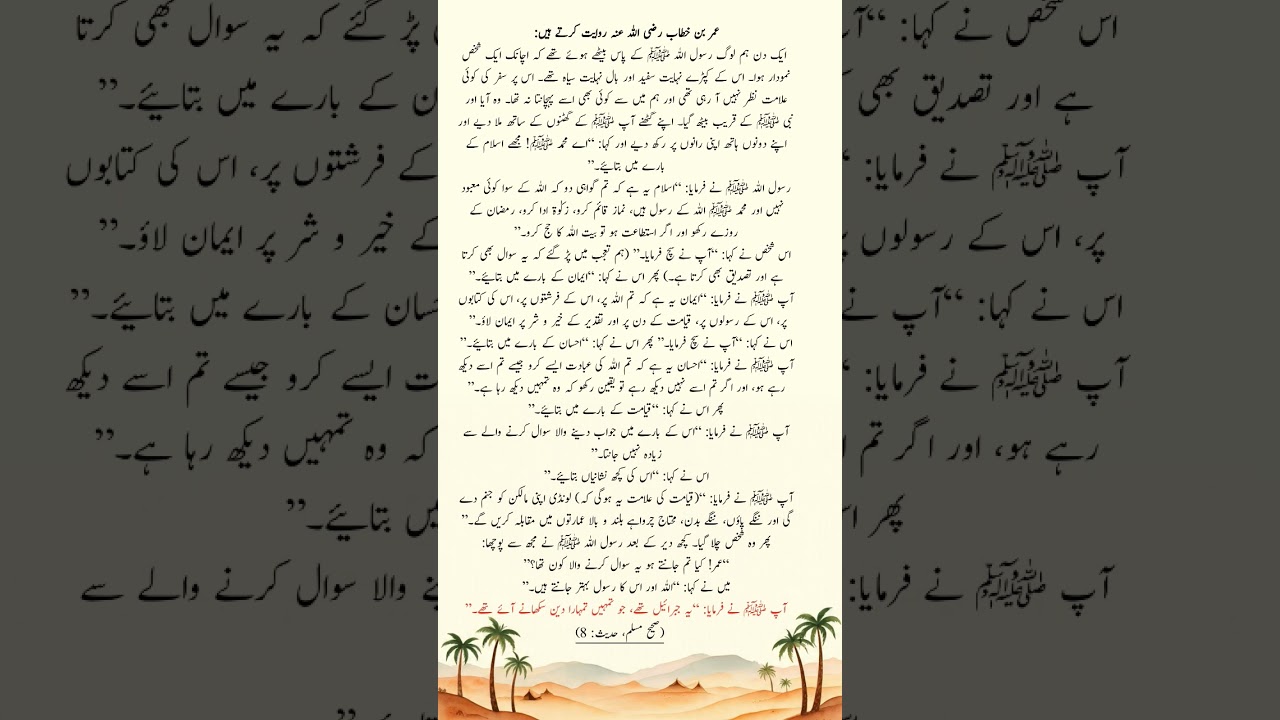 عمر بن خطاب رضی اللہ عنہ روایت کرتے ہیں:
ایک دن ہم لوگ رسول اللہ ﷺ کے پاس بیٹھے ہوئے تھے کہ اچانک ایک شخص
نمودار ہوا۔ اس کے کپڑے نہایت سفید اور بال نہایت سیاہ تھے۔ اس پر سفر کی کوئی
علامت نظر نہیں آ رہی تھی اور ہم میں سے کوئی بھی اسے پہچانتا نہ تھا۔ وہ آیا اور
نبی ﷺ کے قریب بیٹھ گیا۔ اپنے گھٹنے آپ ﷺ کے گھٹنوں کے ساتھ ملا دیے اور
اپنے دونوں ہاتھ اپنی رانوں پر رکھ دیے اور کہا: “اے محمد ﷺ! مجھے اسلام کے
بارے میں بتایئے۔”
رسول اللہ ﷺ نے فرمایا: “اسلام یہ ہے کہ تم گواہی دو کہ اللہ کے سوا کوئی معبود
نہیں اور محمد ﷺ اللہ کے رسول ہیں، نماز قائم کرو، زکوٰۃ ادا کرو، رمضان کے
روزے رکھو اور اگر استطاعت ہو تو بیت اللہ کا حج کرو۔”
اس شخص نے کہا: “آپ نے سچ فرمایا۔” (ہم تعجب میں پڑ گئے کہ یہ سوال بھی کرتا
ہے اور تصدیق بھی کرتا ہے۔) پھر اس نے کہا: “ایمان کے بارے میں بتایئے۔”
آپ ﷺ نے فرمایا: “ایمان یہ ہے کہ تم اللہ پر، اس کے فرشتوں پر، اس کی کتابوں
پر، اس کے رسولوں پر، قیامت کے دن پر اور تقدیر کے خیر و شر پر ایمان لاؤ۔”
اس نے کہا: “آپ نے سچ فرمایا۔” پھر اس نے کہا: “احسان کے بارے میں بتایئے۔”
آپ ﷺ نے فرمایا: “احسان یہ ہے کہ تم اللہ کی عبادت ایسے کرو جیسے تم اسے دیکھ
رہے ہو، اور اگر تم اسے نہیں دیکھ رہے تو یقین رکھو کہ وہ تمہیں دیکھ رہا ہے۔”
پھر اس نے کہا: “قیامت کے بارے میں بتایئے۔”
آپ ﷺ نے فرمایا: “اس کے بارے میں جواب دینے والا سوال کرنے والے سے
زیادہ نہیں جانتا۔”
اس نے کہا: “اس کی کچھ نشانیاں بتایئے۔”
آپ ﷺ نے فرمایا: “(قیامت کی علامت یہ ہوگی کہ) لونڈی اپنی مالکن کو جنم دے
گی اور ننگے پاؤں، ننگے بدن، محتاج چرواہے بلند و بالا عمارتوں میں مقابلہ کریں گے۔”
پھر وہ شخص چلا گیا۔ کچھ دیر کے بعد رسول اللہ ﷺ نے مجھ سے پوچھا:
“عمر! کیا تم جانتے ہو یہ سوال کرنے والا کون تھا؟”
میں نے کہا: “اللہ اور اس کا رسول بہتر جانتے ہیں۔”
آپ ﷺ نے فرمایا: “یہ جبرائیل تھے، جو تمہیں تمہارا دین سکھانے آئے تھے۔”
(صحیح مسلم، حدیث: 8)